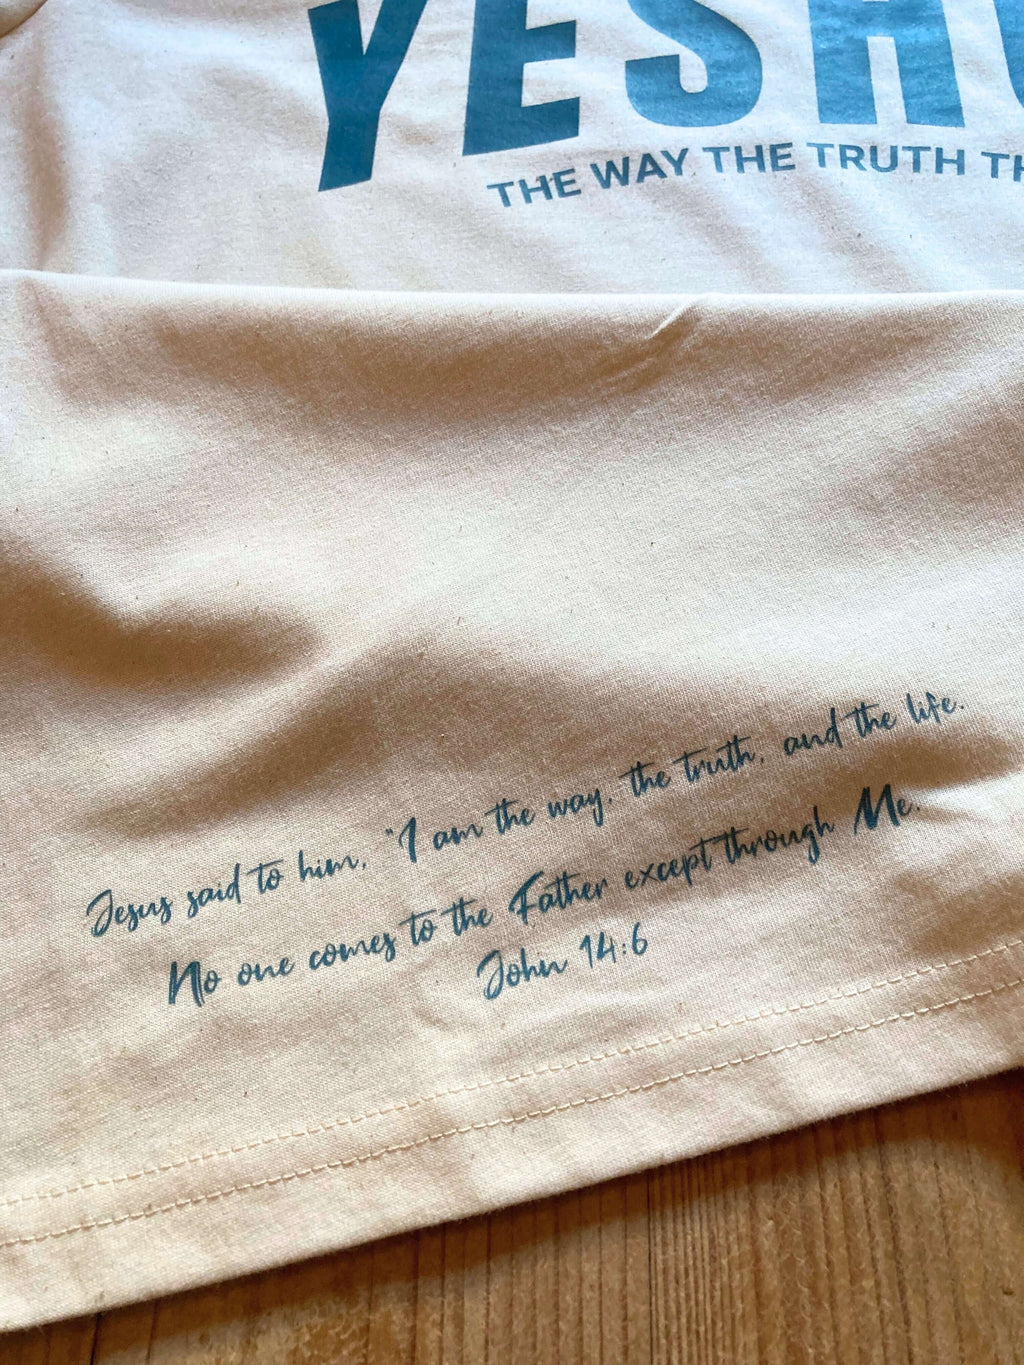 YESH
THE WAY THE TRUTH TH
Jesus said to him, "I am the way, the truth, and the life.
No one comes to the Father except through Me.
John 14:6